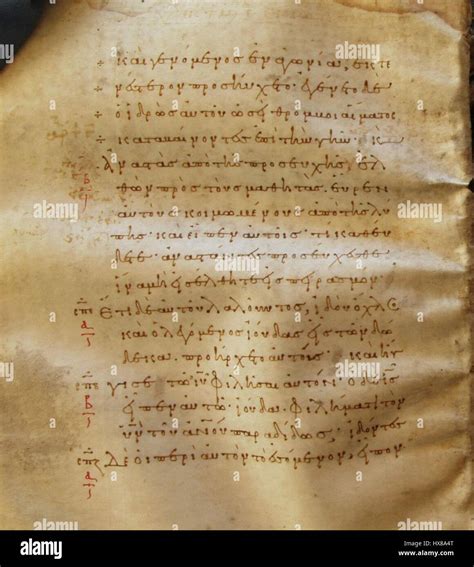 ÷ καὶ γενόμενος ἐν ἀγωνία, ἐκτε
÷ νέστερον προσηύχετο· ἐγένετο δὲ
÷ ὁ ἱδρὼς αὐτοῦ ὡσεὶ θρόμβοι αἵματος
÷ καταβαίνοντες ἐπὶ τὴν γῆν· κ
Ἀναστὰς ἀπὸ τῆς προσευχῆς, ἐλ
θὼν πρὸς τοὺς μαθητὰς, εὗρεν
αὐτοὺς κοιμωμένους ἀπὸ τῆς λύ
πης· καὶ εἶπεν αὐτοῖς· τί καθεύ
δετε· ἀναστάντες προσεύχεσθε
ἵνα μὴ εἰσέλθητε εἰς πειρασμόν·
Ἔτι δὲ αὐτοῦ λαλοῦντος, ἰδοὺ ὄχλος
καὶ ὁ λεγόμενος ἰούδας εἷς τῶν δώ
δεκα· προήρχετο αὐτούς· καὶ ἤγ
γισε τῶ ιυ φιλῆσαι αὐτόν· ὁ δὲ ις
εἶπεν αὐτῶ· ἰούδα· φιλήματι τὸν
υν τοῦ ανου παραδίδως· ἰδόντες
Δὲ οἱ περὶ αὐτὸν τὸ ἐσόμενον, εἶπον
alamy
Image ID: HX8A4T
www.alamy.com